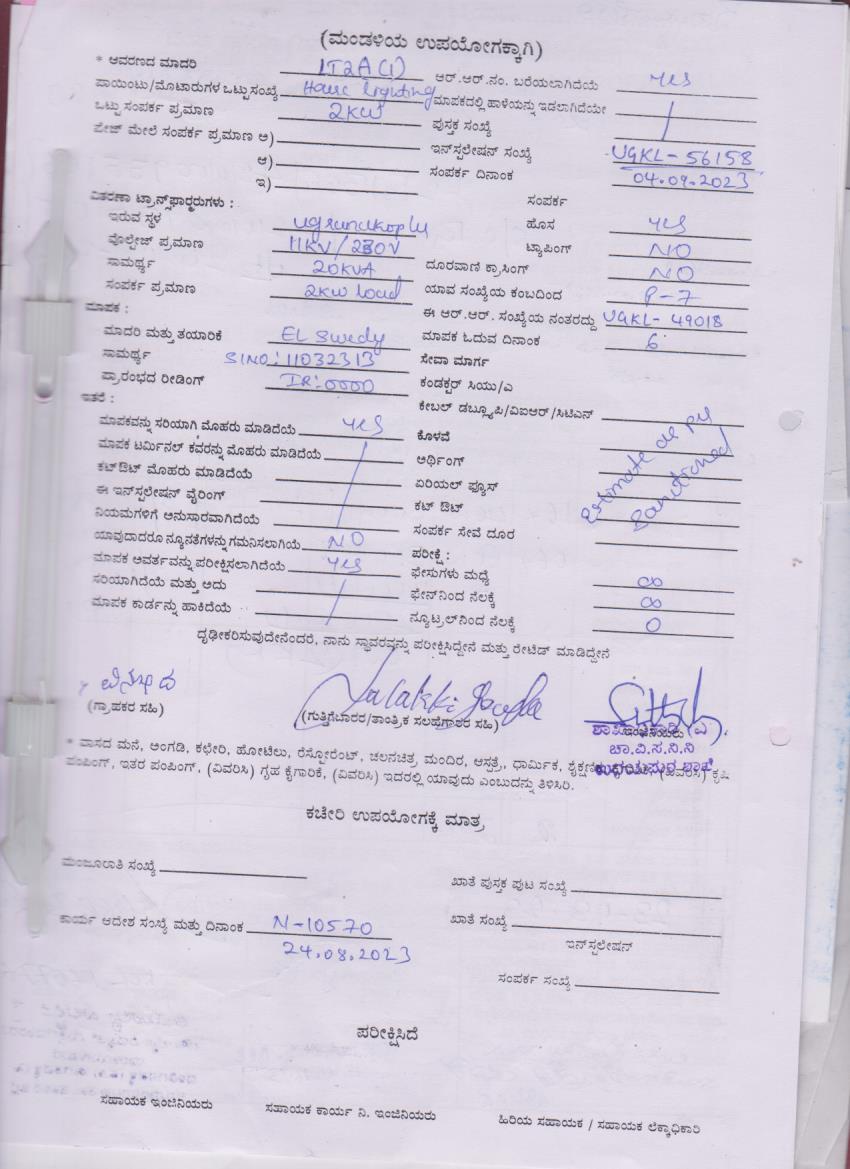 (ಮಂಡಳಿಯ ಉಪಯೋಗಕ್ಕಾಗಿ)
* ಆವರಣದ ಮಾದರಿ LT2A(1) ಆರ್.ಆರ್.ನಂ. ಬರೆಯಲಾಗಿದೆಯೆ yes
ಪಾಯಿಂಟು/ಮೊಟಾರುಗಳ ಒಟ್ಟುಸಂಖ್ಯೆ House lighting ಮಾಪಕದಲ್ಲಿ ಹಾಳೆಯನ್ನು ಇಡಲಾಗಿದೆಯೇ
ಒಟ್ಟು ಸಂಪರ್ಕ ಪ್ರಮಾಣ 2KW ಪುಸ್ತಕ ಸಂಖ್ಯೆ
ಪೇಜ್ ಮೇಲೆ ಸಂಪರ್ಕ ಪ್ರಮಾಣ ಅ) ಇನ್‌ಸ್ಪಲೇಷನ್ ಸಂಖ್ಯೆ UGKL-56158
ಆ) ಸಂಪರ್ಕ ದಿನಾಂಕ 04.09.2023
ಇ)
ವಿತರಣಾ ಟ್ರಾನ್ಸ್‌ಫಾರ್ಮರುಗಳು : ಸಂಪರ್ಕ
ಇರುವ ಸ್ಥಳ ಹೊಸ yes
ವೊಲ್ಟೇಜ್ ಪ್ರಮಾಣ 11KV/230V ಟ್ಯಾಪಿಂಗ್ NO
ಸಾಮರ್ಥ್ಯ 20KVA ದೂರವಾಣಿ ಕ್ರಾಸಿಂಗ್ NO
ಸಂಪರ್ಕ ಪ್ರಮಾಣ 2KW load ಯಾವ ಸಂಖ್ಯೆಯ ಕಂಬದಿಂದ P-7
ಮಾಪಕ : ಈ ಆರ್.ಆರ್. ಸಂಖ್ಯೆಯ ನಂತರದ್ದು UGKL-49018
ಮಾದರಿ ಮತ್ತು ತಯಾರಿಕೆ EL Swedy ಮಾಪಕ ಓದುವ ದಿನಾಂಕ 6
ಸಾಮರ್ಥ್ಯ SlNO:11032313 ಸೇವಾ ಮಾರ್ಗ
ಪ್ರಾರಂಭದ ರೀಡಿಂಗ್ IR:0000 ಕಂಡಕ್ಟರ್ ಸಿಯು/ಎ
ಇತರೆ : ಕೇಬಲ್ ಡಬ್ಲ್ಯೂಪಿ/ವಿಐಆರ್/ಸಿಟಿಎನ್
ಮಾಪಕವನ್ನು ಸರಿಯಾಗಿ ಮೊಹರು ಮಾಡಿದೆಯೆ yes ಕೊಳವೆ
ಮಾಪಕ ಟರ್ಮಿನಲ್ ಕವರನ್ನು ಮೊಹರು ಮಾಡಿದೆಯೆ ಅರ್ಥಿಂಗ್
ಕಟ್‌ಔಟ್ ಮೊಹರು ಮಾಡಿದೆಯೆ ಏರಿಯಲ್ ಫ್ಯೂಸ್
ಈ ಇನ್‌ಸ್ಪಲೇಷನ್ ವೈರಿಂಗ್ ಕಟ್ ಔಟ್
Estimate as per sanctioned
ನಿಯಮಗಳಿಗೆ ಅನುಸಾರವಾಗಿದೆಯೆ ಸಂಪರ್ಕ ಸೇವೆ ದೂರ
ಯಾವುದಾದರೂ ನ್ಯೂನತೆಗಳನ್ನು ಗಮನಿಸಲಾಗಿಯೆ NO ಪರೀಕ್ಷೆ :
ಮಾಪಕ ಅವರ್ತವನ್ನು ಪರೀಕ್ಷಿಸಲಾಗಿದೆಯೆ yes ಫೇಸುಗಳು ಮಧ್ಯೆ ∞
ಸರಿಯಾಗಿದೆಯೆ ಮತ್ತು ಅದು ಫೇಸ್‌ನಿಂದ ನೆಲಕ್ಕೆ ∞
ಮಾಪಕ ಕಾರ್ಡನ್ನು ಹಾಕಿದೆಯೆ ನ್ಯೂಟ್ರಲ್‌ನಿಂದ ನೆಲಕ್ಕೆ 0
ದೃಢೀಕರಿಸುವುದೇನೆಂದರೆ, ನಾನು ಸ್ಥಾವರವನ್ನು ಪರೀಕ್ಷಿಸಿದ್ದೇನೆ ಮತ್ತು ರೇಟಿಡ್ ಮಾಡಿದ್ದೇನೆ
(ಗ್ರಾಹಕರ ಸಹಿ) (ಗುತ್ತಿಗೆದಾರರ/ತಾಂತ್ರಿಕ ಸಲಹೆಗಾರರ ಸಹಿ)
ಚಾ.ವಿ.ಸ.ನಿ.ನಿ
* ವಾಸದ ಮನೆ, ಅಂಗಡಿ, ಕಛೇರಿ, ಹೋಟೆಲು, ರೆಸ್ಟೋರೆಂಟ್, ಚಲನಚಿತ್ರ ಮಂದಿರ, ಆಸ್ಪತ್ರೆ, ಧಾರ್ಮಿಕ, (ವಿವರಿಸಿ) ಕೃಷಿ
ಪಂಪಿಂಗ್, ಇತರ ಪಂಪಿಂಗ್, (ವಿವರಿಸಿ) ಗೃಹ ಕೈಗಾರಿಕೆ, (ವಿವರಿಸಿ) ಇದರಲ್ಲಿ ಯಾವುದು ಎಂಬುದನ್ನು ತಿಳಿಸಿರಿ.
ಕಚೇರಿ ಉಪಯೋಗಕ್ಕೆ ಮಾತ್ರ
ಮಂಜೂರಾತಿ ಸಂಖ್ಯೆ ಖಾತೆ ಪುಸ್ತಕ ಪುಟ ಸಂಖ್ಯೆ
ಕಾರ್ಯ ಆದೇಶ ಸಂಖ್ಯೆ ಮತ್ತು ದಿನಾಂಕ N-10570 ಖಾತೆ ಸಂಖ್ಯೆ
24.08.2023 ಇನ್‌ಸ್ಪಲೇಷನ್
ಸಂಪರ್ಕ ಸಂಖ್ಯೆ
ಪರೀಕ್ಷಿಸಿದೆ
ಸಹಾಯಕ ಇಂಜಿನಿಯರು ಸಹಾಯಕ ಕಾರ್ಯ ನಿ. ಇಂಜಿನಿಯರು ಹಿರಿಯ ಸಹಾಯಕ / ಸಹಾಯಕ ಲೆಕ್ಕಾಧಿಕಾರಿ